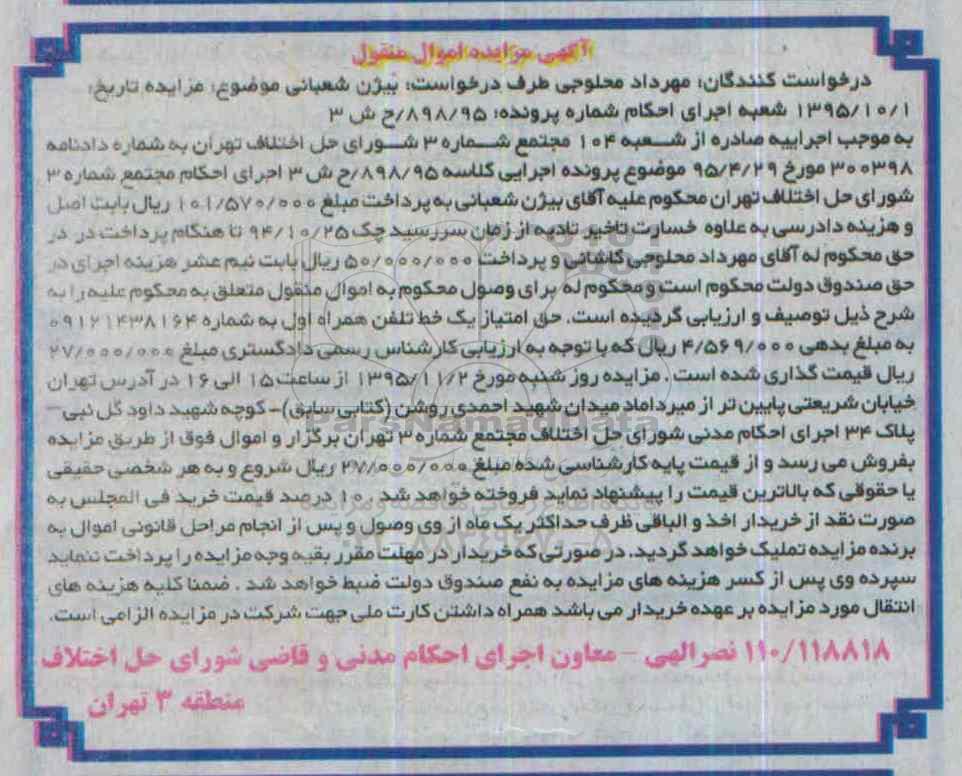 آگهی مزایده اموال منقول
درخواست کنندگان: مهرداد محلوجی طرف درخواست: بیژن شعبانی موضوع: مزایده تاریخ:
۱۳۹۵/۱۰/۱ شعبه اجرای احکام شماره پرونده: ۸۹۸/۹۵/ح ش ۳
به موجب اجراییه صادره از شعبه ۱۰۴ مجتمع شماره ۳ شورای حل اختلاف تهران به شماره دادنامه
۳۰۰۳۹۸ مورخ ۹۵/۴/۲۹ موضوع پرونده اجرایی کلاسه ۸۹۸/۹۵/ح ش ۳ اجرای احکام مجتمع شماره ۳
شورای حل اختلاف تهران محکوم علیه آقای بیژن شعبانی به پرداخت مبلغ ۱۰۱/۵۷۰/۰۰۰ ریال بابت اصل
و هزینه دادرسی به علاوه خسارت تاخیر تادیه از زمان سررسید چک ۹۴/۱۰/۲۵ تا هنگام پرداخت در در
حق محکوم له آقای مهرداد محلوجی کاشانی و پرداخت ۵۰/۰۰۰/۰۰۰ ریال بابت نیم عشر هزینه اجرای در
حق صندوق دولت محکوم است و محکوم له برای وصول محکوم به اموال منقول متعلق به محکوم علیه را به
شرح ذیل توصیف و ارزیابی گردیده است. حق امتیاز یک خط تلفن همراه اول به شماره ۰۹۱۲۱۴۳۸۱۶۴
به مبلغ بدهی ۴/۵۶۹/۰۰۰ ریال که با توجه به ارزیابی کارشناس رسمی دادگستری مبلغ ۲۷/۰۰۰/۰۰۰
ریال قیمت گذاری شده است. مزایده روز شنبه مورخ ۱۳۹۵/۱۱/۲ از ساعت ۱۵ الی ۱۶ در آدرس تهران
خیابان شریعتی پایین تر از میرداماد میدان شهید احمدی روشن (کتابی سابق)- کوچه شهید داود گل نبی-
پلاک ۳۴ اجرای احکام مدنی شورای حل اختلاف مجتمع شماره ۳ تهران برگزار و اموال فوق از طریق مزایده
بفروش می رسد و از قیمت پایه کارشناسی شده مبلغ ۲۷/۰۰۰/۰۰۰ ریال شروع و به هر شخصی حقیقی
یا حقوقی که بالاترین قیمت را پیشنهاد نماید فروخته خواهد شد. ۱۰ درصد قیمت خرید فی المجلس به
صورت نقد از خریدار اخذ و الباقی ظرف حداکثر یک ماه از وی وصول و پس از انجام مراحل قانونی اموال به
برنده مزایده تملیک خواهد گردید. در صورتی که خریدار در مهلت مقرر بقیه وجه مزایده را پرداخت ننماید
سپرده وی پس از کسر هزینه های مزایده به نفع صندوق دولت ضبط خواهد شد. ضمنا کلیه هزینه های
انتقال مورد مزایده بر عهده خریدار می باشد همراه داشتن کارت ملی جهت شرکت در مزایده الزامی است.
۱۱۰/۱۱۸۸۱۸ نصرالهی - معاون اجرای احکام مدنی و قاضی شورای حل اختلاف
منطقه ۳ تهران
ParsNamadData